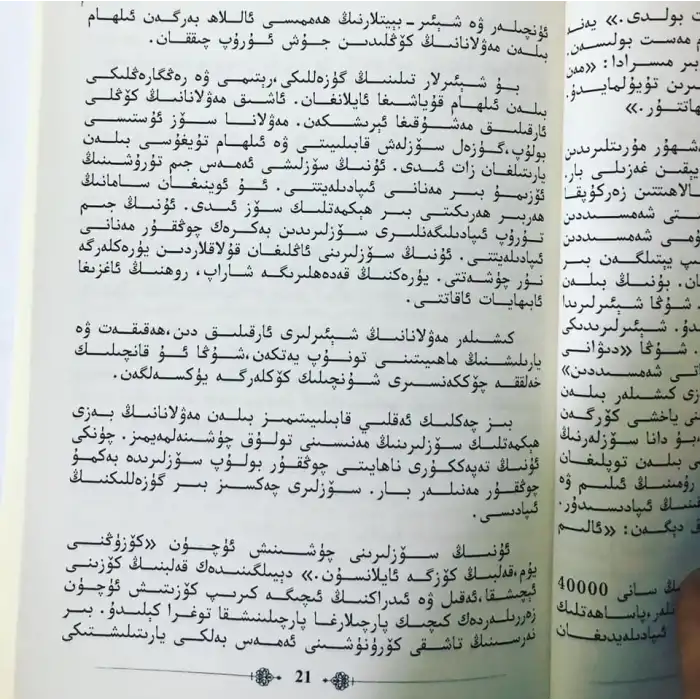 ئۈنچىلەر ۋە شېئىر - بېيتلارنىڭ ھەممىسى ئاللاھ بەرگەن ئىلھام
بىلەن مەۋلانانىڭ كۆڭلىدىن جۇش ئۇرۇپ چىققان.
بۇ شېئىرلار تىلىنىڭ گۈزەللىكى،رېتىمى ۋە رەڭگارەڭلىكى
بىلەن ئىلھام قۇياشىغا ئايلانغان. ئاشىق مەۋلانانىڭ كۆڭلى
ئارقىلىق مەشۇقىغا ئېرىشكەن. مەۋلانا سۆز ئۇستىسى
بولۇپ،گۈزەل سۆزلەش قابىلىيىتى ۋە ئىلھام تۇيغۇسى بىلەن
يارىتىلغان زات ئىدى. ئۇنىڭ سۆزلىشى ئەمەس جىم تۇرۇشىنىڭ
ئۆزىمۇ بىر مەنانى ئىپادىلەيتتى. ئۇ ئوينىغان سامانىڭ
ھەربىر ھەرىكىتى بىر ھېكمەتلىك سۆز ئىدى. ئۇنىڭ جىم
تۇرۇپ ئىپادىلىگەنلىرى سۆزلىرىدىن بەكرەك چوڭقۇر مەنانى
ئىپادىلەيتتى. ئۇنىڭ سۆزلىرىنى ئاڭلىغان قۇلاقلاردىن يۈرەكلەرگە
نۇر چۈشەتتى. يۈرەكنىڭ قەدەھلىرىگە شاراپ، روھنىڭ ئاغزىغا
ئابىھايات ئاقاتتى.
كىشىلەر مەۋلانانىڭ شېئىرلىرى ئارقىلىق دىن،ھەقىقەت ۋە
يارىلىشنىڭ ماھىيىتىنى تونۇپ يەتكەن،شۇڭا ئۇ قانچىلىك
خەلققە چۆككەنسىرى شۇنچىلىك كۆكلەرگە يۈكسەلگەن.
بىز چەكلىك ئەقلىي قابىلىيىتىمىز بىلەن مەۋلانانىڭ بەزى
ھېكمەتلىك سۆزلىرىنىڭ مەنىسىنى تولۇق چۈشىنەلمەيمىز. چۈنكى
ئۇنىڭ تەپەككۇرى ناھايىتى چوڭقۇر بولۇپ سۆزلىرىدە بەكمۇ
چوڭقۇر مەنىلەر بار. سۆزلىرى چەكسىز بىر گۈزەللىكنىڭ
ئىپادىسى.
ئۇنىڭ سۆزلىرىنى چۈشىنىش ئۈچۈن «كۆزۈڭنى
يۇم،قەلبىڭ كۆزگە ئايلانسۇن.» دېيىلگىنىدەك قەلبنىڭ كۆزىنى
ئېچىشقا،ئەقىل ۋە ئىدراكنىڭ ئىچىگە كىرىپ كۆزىتىش ئۈچۈن
زەررىلەردەك كىچىك پارچىلارغا پارچىلىنىشقا توغرا كېلىدۇ. بىر
نەرسىنىڭ تاشقى كۆرۈنۈشىنى ئەمەس بەلكى يارىتىلىشتىكى
21
بولدى.» يەنە
مەست بولىسەن.
بىر مىسرادا: «مەن
تۇيۇلمايدۇ.
مۇرىتلىرىدىن
غەزىلى بار.
زەركۇپقا
شەمىسىدىن
شەمىسىدىن
يېتىلگەن بىر
بۇنىڭ بىلەن
شۇڭا شېئىرلىرىدا
شېئىرلىرىدىكى
شۇڭا «دىۋانى
شەمىسىدىن»
كىشىلەر بىلەن
ياخشى كۆرگەن
دانا سۆزلەرنىڭ
بىلەن توپلىغان
رۇمىنىڭ ئىلىم ۋە
ئىپادىسىدۇر.
دېگەن: «ئالىم
سانى 40000
پاساھەتلىك
ئىپادىلەيدىغان